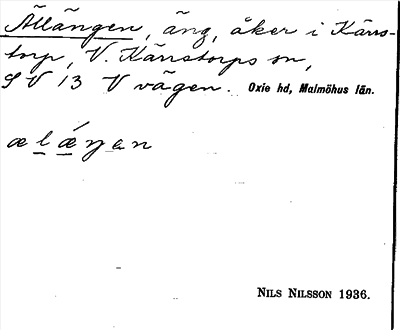 Ällängen, äng, åker i Kärrs-
torp, V. Kärrstorps sn,
SV 13 V vägen. Oxie hd, Malmöhus län.
ælǽŋen
NILS NILSSON 1936.